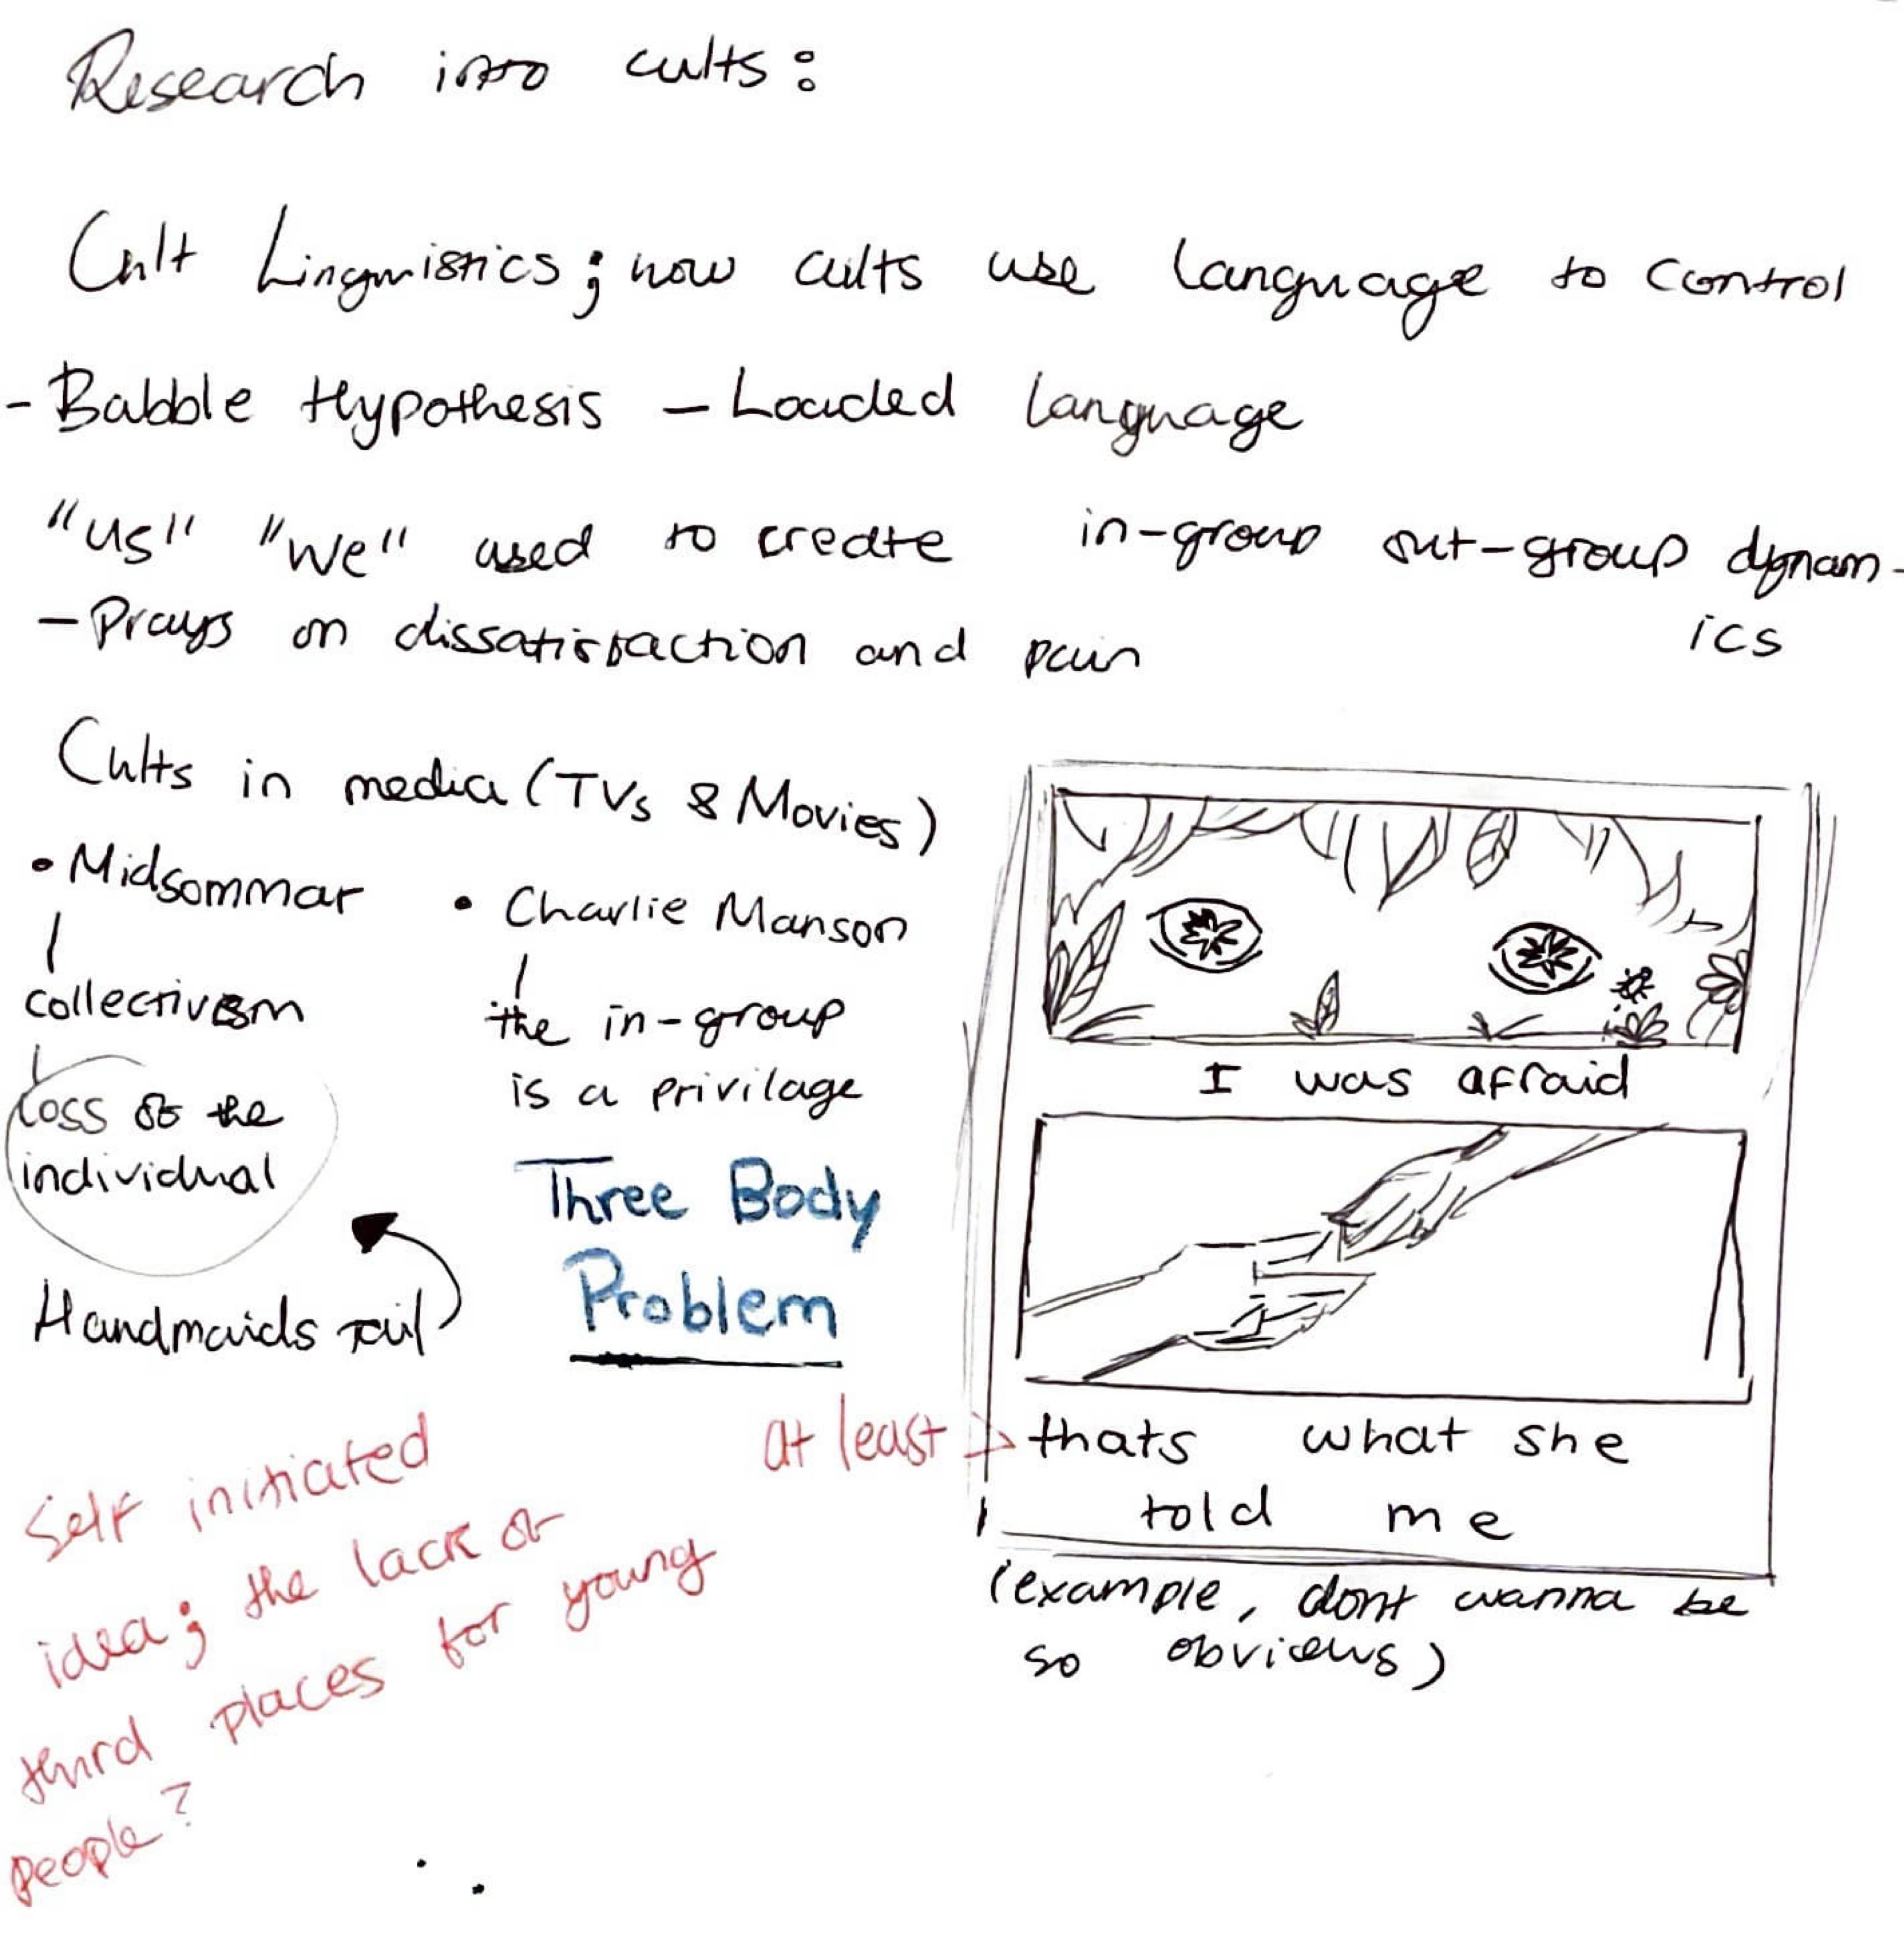 Research into cults:
Cult Linguistics; how cults use language to control
- Babble Hypothesis - Loaded language
"us" "we" used to create in-group out-group dynam-
ics
- Prays on dissatisfaction and pain
Cults in media (TVs & Movies)
• Midsommar
collectivism
loss of the
individual
Handmaids tail
• Charlie Manson
the in-group
is a privilage
Three Body
Problem
I was afraid
at least > thats what she
told me
(example, dont wanna be
so obvious)
Self initiated
idea; the lack of
third places for young
people?